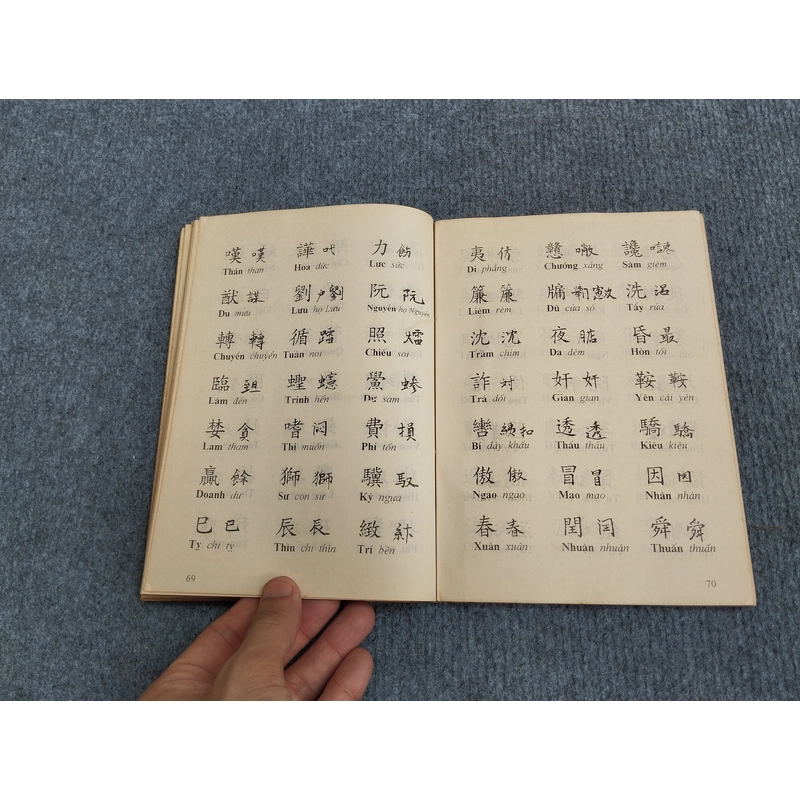 嘆 嘆 譁 吠 力 飭
Thán than Hoa dức Lực sức
猷 謀 劉 户劉 阮 阮
Du mưu Lưu họ Lưu Nguyễn họ Nguyễn
轉 轉 循 蹈 照
Chuyển chuyển Tuân noi Chiếu soi
臨 蟶 鱟
Lâm đến Trinh hến Dg sam
婪 貪 嗜 悶 費 損
Lam tham Thị muốn Phí tốn
贏 餘 獅 獅 驥 馭
Doanh dư Sư con sư Ký ngựa
巳 巳 辰 辰 緻
Tỵ chi tỵ Thìn chi thìn Trí bền
69
夷 仿 戇 讒
Di phẳng Choướng xẳng Sàm gièm
簾 簾 牖 洗 沼
Liêm rèm Dũ cửa sổ Tẩy rửa
沈 沈 夜 昏 最
Trầm chìm Dạ đêm Hôn tối
詐 对 奸 奸 鞍 鞍
Trá dối Gian gian Yên cái yên
轡 扣 透 透 驕 驕
Bí dây khấu Thấu thấu Kiêu kiêu
傲 傲 冒 冒 因 因
Ngạo ngạo Mạo mạo Nhân nhân
春 春 閏 闰 舜 舜
Xuân xuân Nhuận nhuận Thuấn thuấn
70